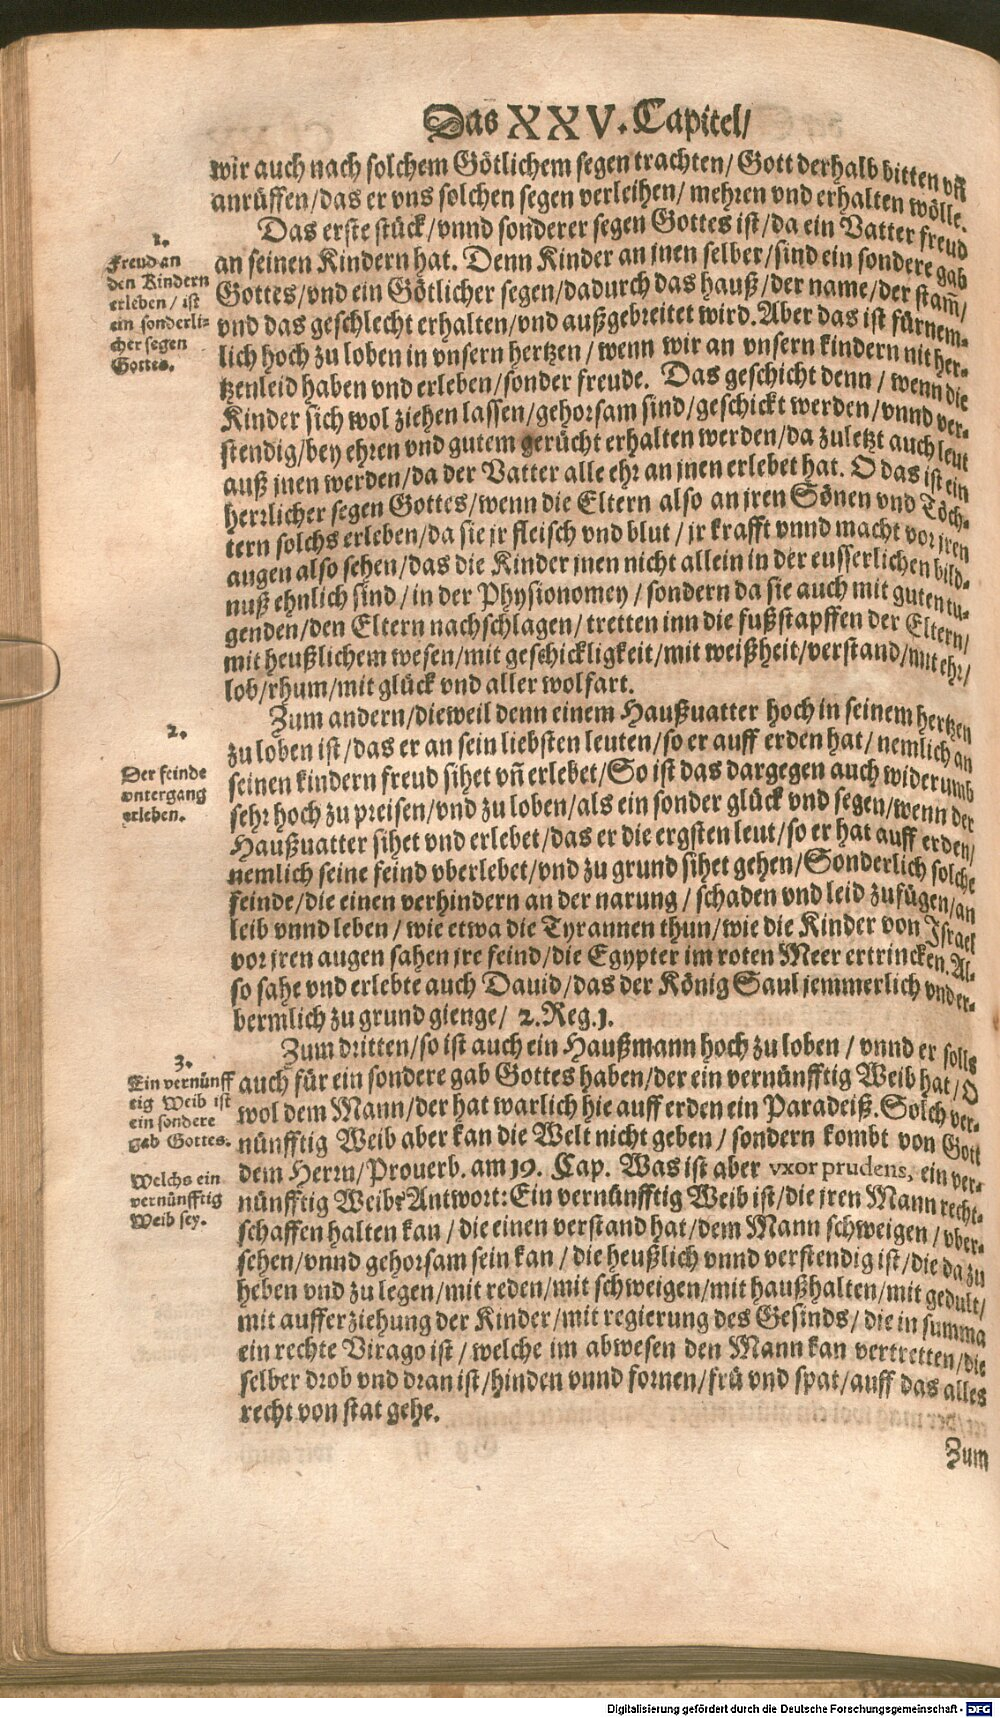 Das XXV. Capitel/
wir auch nach solchem Götlichem segen trachten/ Gott derhalb bitten vñ
anrüffen/das er vns solchen segen verleihen/ mehren vnd erhalten wölle.
Das erste stück/vnnd sonderer segen Gottes ist/da ein Vatter freud
an seinen Kindern hat. Denn Kinder an jnen selber/sind ein sondere gab
Gottes/vnd ein Götlicher segen/dadurch das hauß/der name/der stam̃/
vnd das geschlecht erhalten/vnd außgebreitet wird. Aber das ist fürnem-
lich hoch zu loben in vnsern hertzen/wenn wir an vnsern kindern nit her-
tzenleid haben vnd erleben/sonder freude. Das geschicht denn/wenn die
Kinder sich wol ziehen lassen/gehorsam sind/geschickt werden/vnnd ver-
stendig/bey ehren vnd gutem gerücht erhalten werden/da zuletzt auch leut
auß jnen werden/da der Vatter alle ehr an jnen erlebet hat. O das ist ein
herrlicher segen Gottes/wenn die Eltern also an jren Sönen vnd Töch-
tern solchs erleben/da sie jr fleisch vnd blut/jr krafft vnnd macht vor jren
augen also sehen/das die Kinder jnen nicht allein in der eusserlichen bild-
nuß ehnlich sind/in der Physionomey/sondern da sie auch mit guten tu-
genden/den Eltern nachschlagen/tretten inn die fußstapffen der Eltern/
mit heußlichem wesen/mit geschickligkeit/mit weißheit/verstand/mit ehr/
lob/rhum/mit glück vnd aller wolfart.
Zum andern/dieweil denn einem Haußuatter hoch in seinem hertzen
zu loben ist/das er an sein liebsten leuten/so er auff erden hat/nemlich an
seinen kindern freud sihet vñ erlebet/So ist das dargegen auch widerumb
sehr hoch zu preisen/vnd zu loben/als ein sonder glück vnd segen/wenn der
Haußuatter sihet vnd erlebet/das er die ergsten leut/so er hat auff erden/
nemlich seine feind vberlebet/vnd zu grund sihet gehen/Sonderlich solche
feinde/die einen verhindern an der narung/schaden vnd leid zufügen/an
leib vnnd leben/wie etwa die Tyrannen thun/wie die Kinder von Israel
vor jren augen sahen jre feind/die Egypter im roten Meer ertrincken. Al-
so sahe vnd erlebte auch Dauid/das der König Saul jemmerlich vnd er-
bermlich zu grund gienge/ 2. Reg. 1.
Zum dritten/so ist auch ein Haußmann hoch zu loben/vnnd er solls
auch für ein sondere gab Gottes haben/der ein vernünfftig Weib hat/O
wol dem Mann/der hat warlich hie auff erden ein Paradeiß. Solch ver-
nünfftig Weib aber kan die Welt nicht geben/sondern kombt von Gott
dem Herrn/Prouerb. am 19. Cap. Was ist aber vxor prudens, ein ver-
nünfftig Weib? Antwort: Ein vernünfftig Weib ist/die jren Mann recht-
schaffen halten kan/die einen verstand hat/dem Mann schweigen/vber-
sehen/vnnd gehorsam sein kan/die heußlich vnnd verstendig ist/die da zu
heben vnd zu legen/mit reden/mit schweigen/mit haußhalten/mit gedult/
mit aufferziehung der Kinder/mit regierung des Gesinds/die in summa
ein rechte Virago ist/welche im abwesen den Mann kan vertretten/die
selber drob vnd dran ist/hinden vnnd fornen/frü vnd spat/auff das alles
recht von stat gehe.
Zum
1.
Freud an
den Kindern
erleben/ ist
ein sonderli-
cher segen
Gottes.
2.
Der feinde
vntergang
erleben.
3.
Ein vernünff
tig Weib ist
ein sondere
gab Gottes.
Welchs ein
vernünfftig
Weib sey.
Digitalisierung gefördert durch die Deutsche Forschungsgemeinschaft - DFG